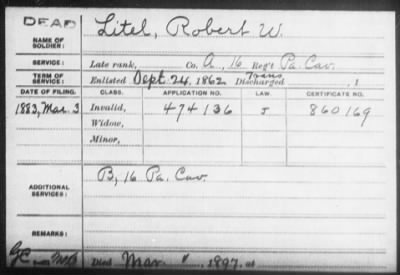 DEAD
Litel, Robert W.
NAME OF SOLDIER:
SERVICE: Late rank, Co. A, 16 Reg't Pa. Cav.
TERM OF SERVICE: Enlisted Sept. 24, 1862 Discharged Trans , 1
DATE OF FILING. CLASS. APPLICATION NO. LAW. CERTIFICATE NO.
1883, Mar. 3 Invalid, 474136 J 860169
Widow,
Minor,
ADDITIONAL SERVICES: B, 16 Pa. Cav.
REMARKS:
Died Mar. , 1897, at